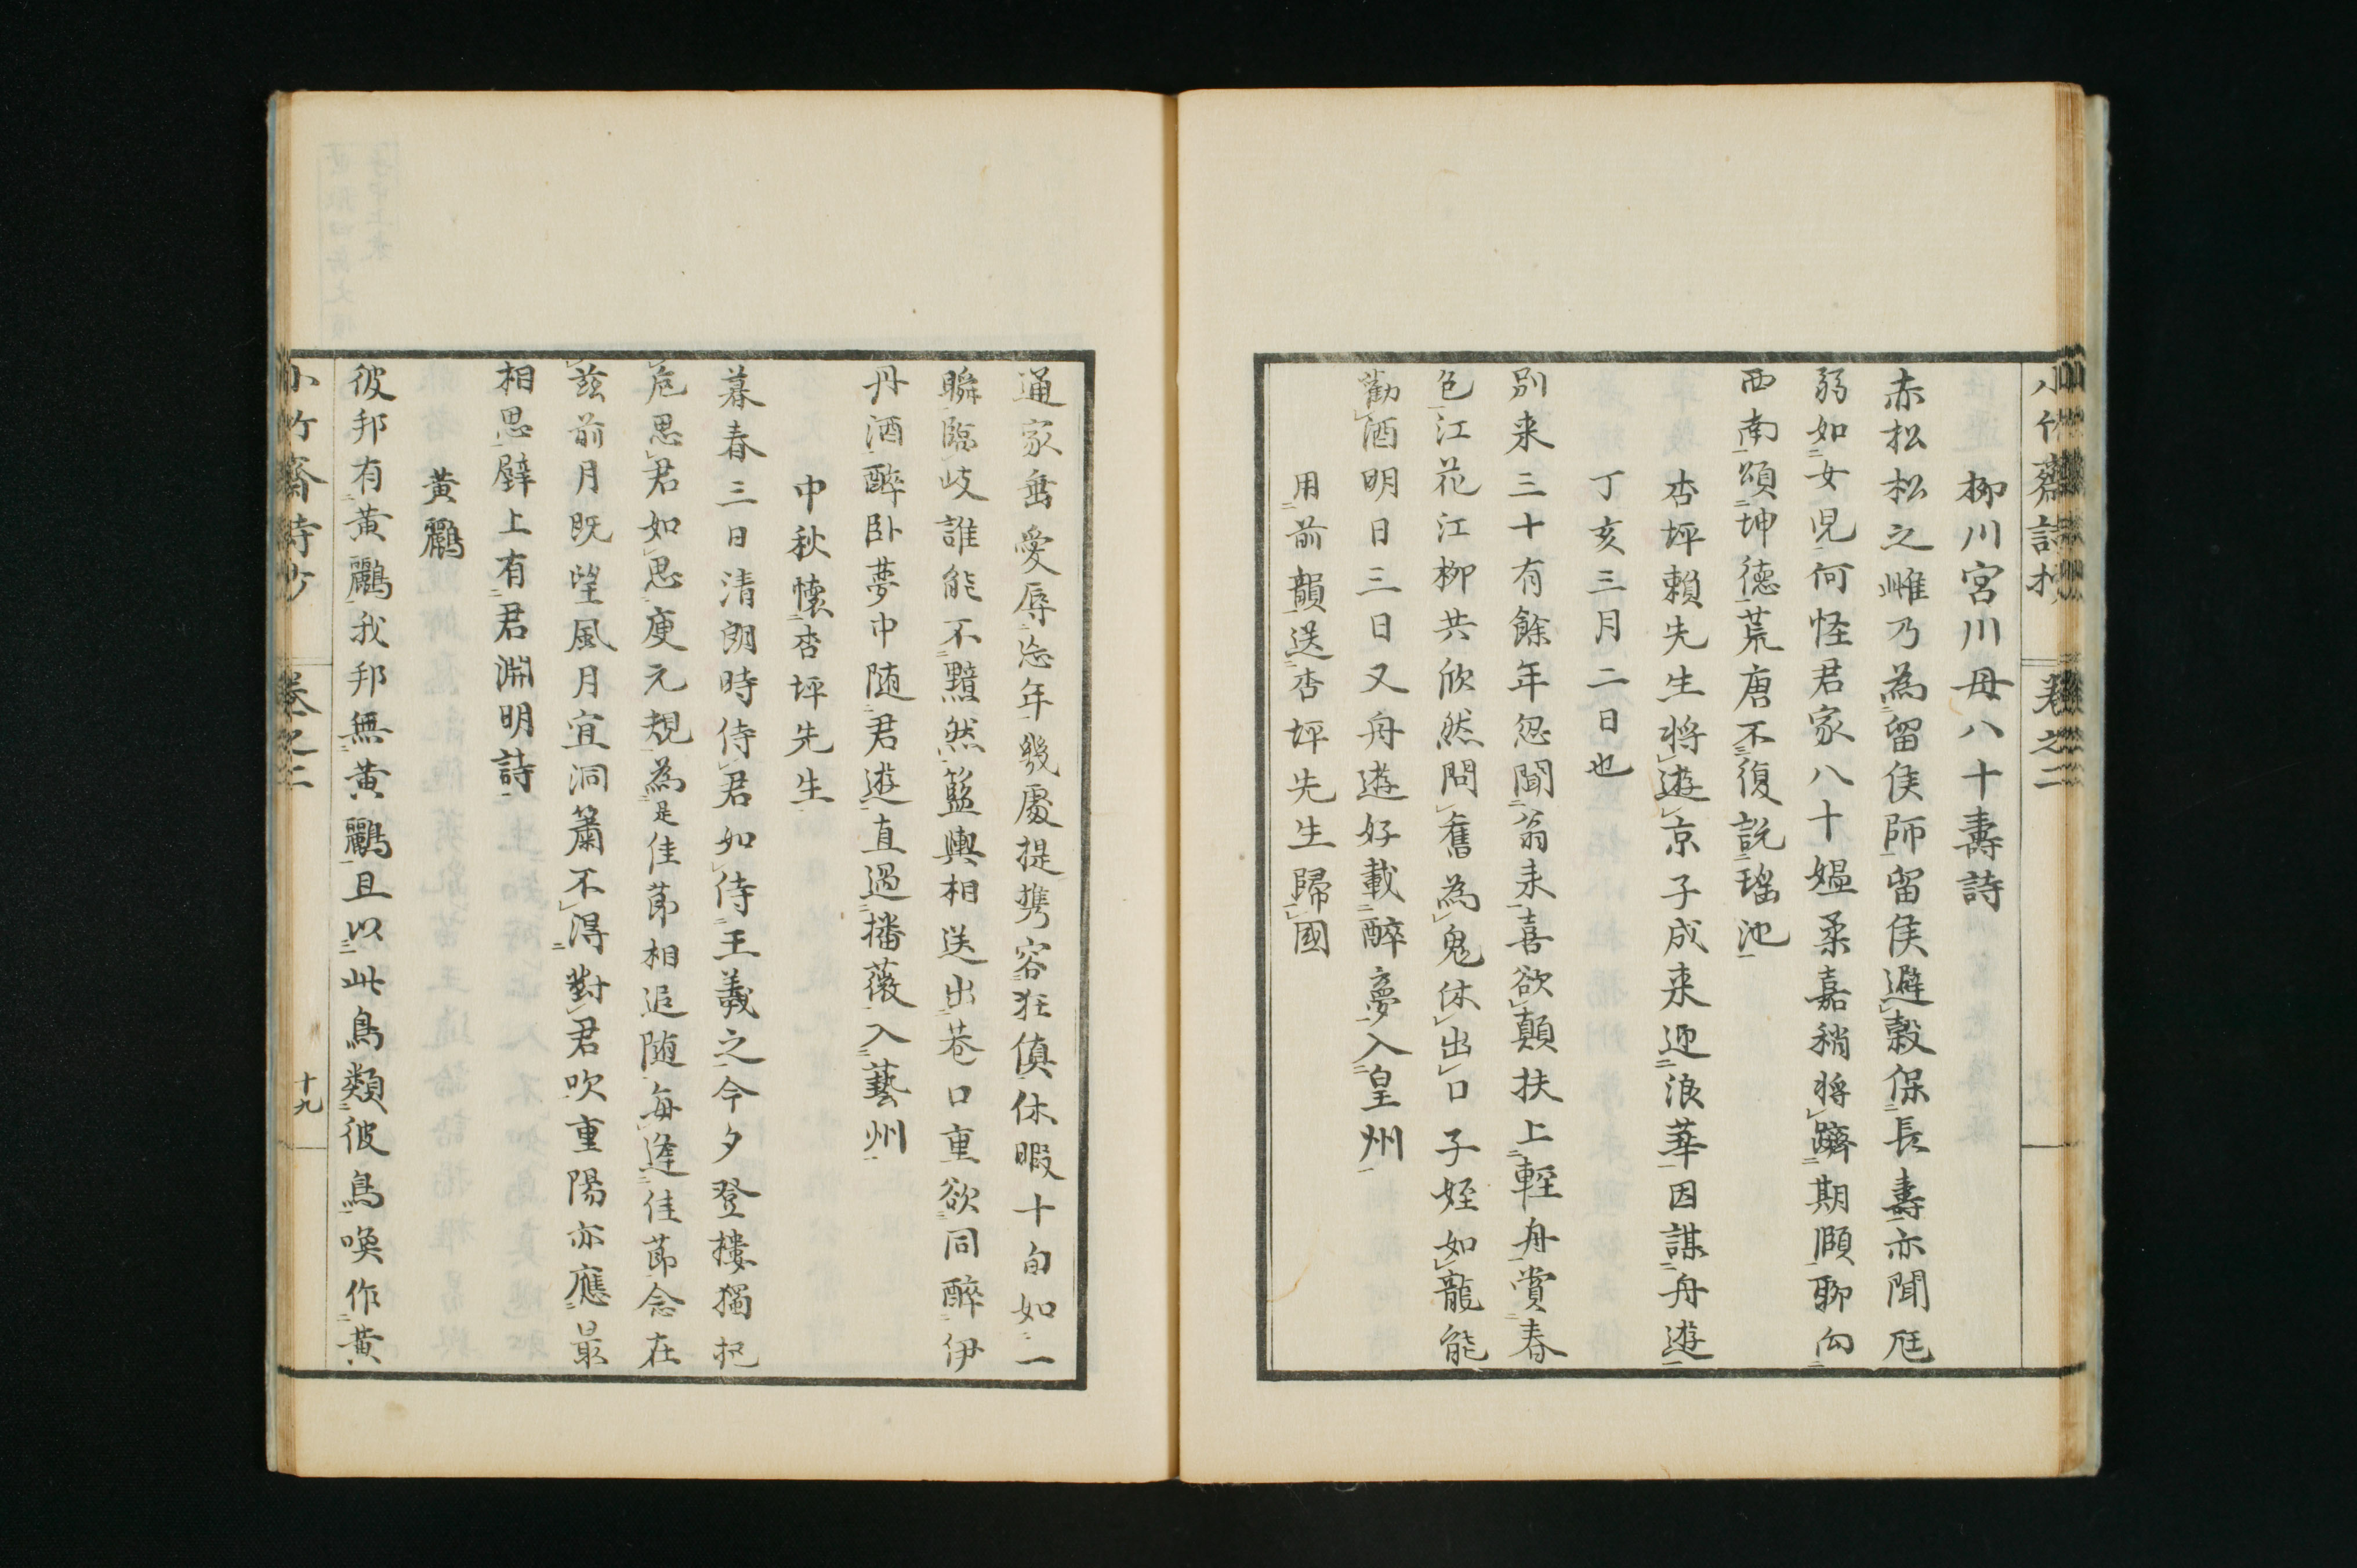 小竹齋詩抄 卷之二
柳川宮川母八十壽詩
赤松松之雌乃為留侯師留侯避穀保長壽亦聞尫
弱如女児何怪君家八十媼柔嘉稍将躋期頤聊向
西南頌坤德荒唐不復説瑤池
杏坪賴先生将遊京子成来迎浪華因謀舟遊
丁亥三月二日也
別来三十有餘年忽聞翁来喜欲顛扶上輕舟賞春
色江花江柳共欣然問舊為鬼休出口子姪如龍能
勸酒明日三日又舟遊好載醉夢入皇州
用前韻送杏坪先生歸國
通家垂愛辱忘年幾處提攜容狂傎休暇十旬如一
瞬臨岐誰能不黯然籃輿相送出巷口重欲同醉伊
丹酒醉卧夢中随君遊直過播薇入藝州
中秋懷杏坪先生
暮春三日清朗時侍君如侍王羲之今夕登樓獨把
卮思君如思庾元規為是佳節相追随每逢佳節念在
茲前月既望風月宜洞簫不得對君吹重陽亦應最
相思壁上有君淵明詩
黄鸝
彼邦有黄鸝我邦無黄鸝且以此鳥類彼鳥喚作黄
小竹齋詩抄 卷之二 十九